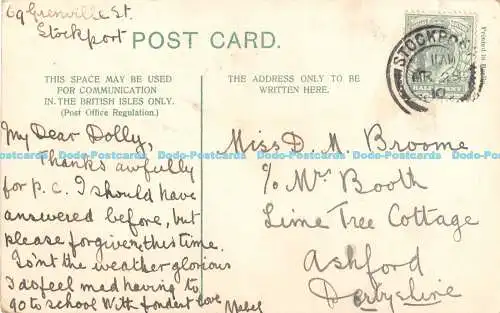 69 Grenville St.
Stockport
POST CARD.
THIS SPACE MAY BE USED
FOR COMMUNICATION
IN THE BRITISH ISLES ONLY.
(Post Office Regulation.)
My Dear Dolly,
Thanks awfully
for p.c. I should have
answered before, but
please forgive, this time.
Isn't the weather glorious
I do feel mad having to
go to school With fondest love
Mabel
THE ADDRESS ONLY TO BE
WRITTEN HERE.
Miss D. M. Broome
c/o Mrs Booth
Lime Tree Cottage
Ashford
Derbyshire
STOCKPORT
HALFPENNY
Printed in
Dodo-Postcards Dodo-Postcards Dodo-Postcards Dodo-Postcards Dodo-Postcards